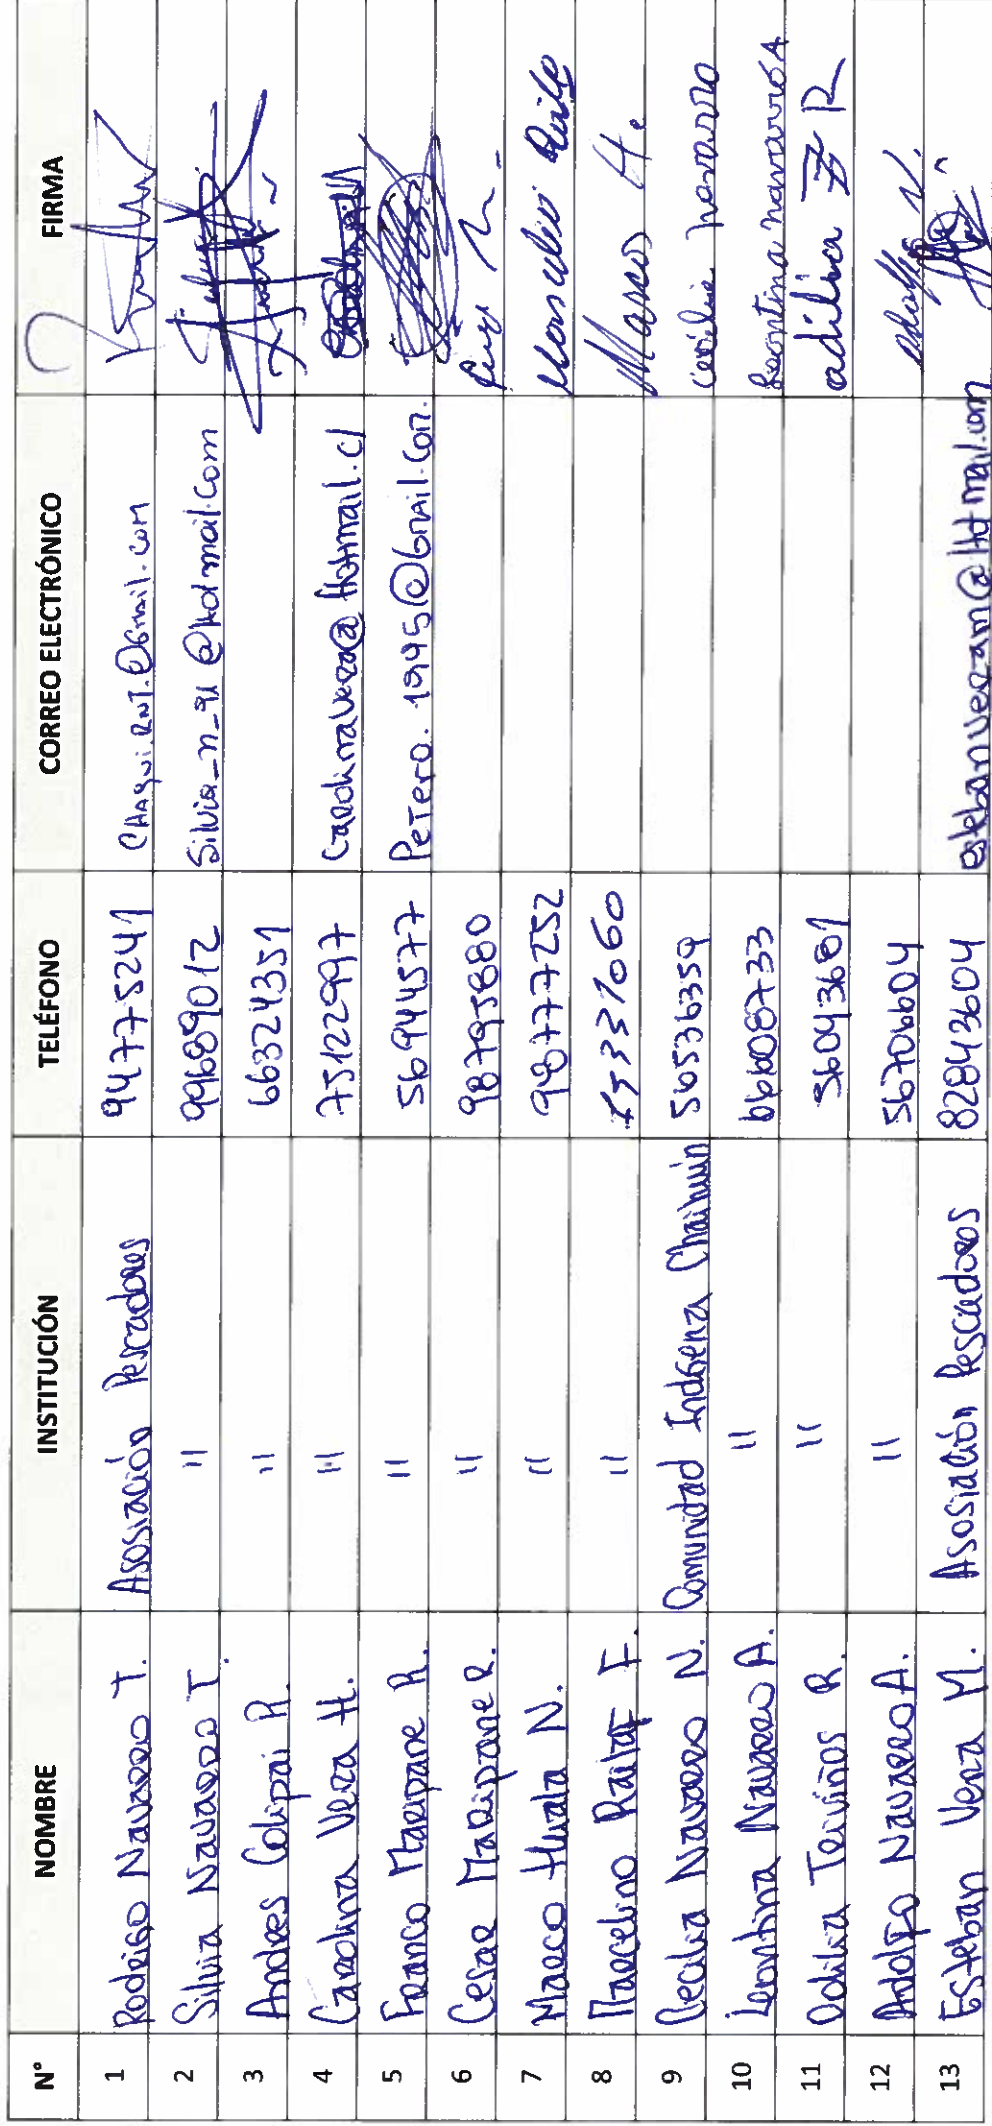 N° NOMBRE INSTITUCIÓN TELÉFONO CORREO ELECTRÓNICO FIRMA
1 Rodrigo Navarro T. Asosiación Pescadores 947775241 CHAqui.RNT.@Gmail.com
2 Silvia Navarro T. " 99689012 Silvia_n_91@Hotmail.com
3 Andres Colipai R. " 66324351
4 Carolina Vera H. " 75122997 Carolinavera@Hotmail.cl
5 Franco Maripane R. " 56944577 Petero.1995@Gmail.com.
6 Cesar Maripane R. " 98795880
7 Marco Huala N. " 98777252
8 Marcelino Railaf F. " Marcos H.
9 Cecilia Navarro N. Comunidad Indígena Chaihuin 56536359 Cecilia navarro
10 Leontina Navarro A. " 66608733 Leontina navarro A
11 Odilia Teiviños R. " 56043681 adilia R
12 Adolfo Navarro A. " 56706604 Adolfo N.
13 Esteban Vera M. Asosiación Pescadores 82843604 estebanveram@Hotmail.com